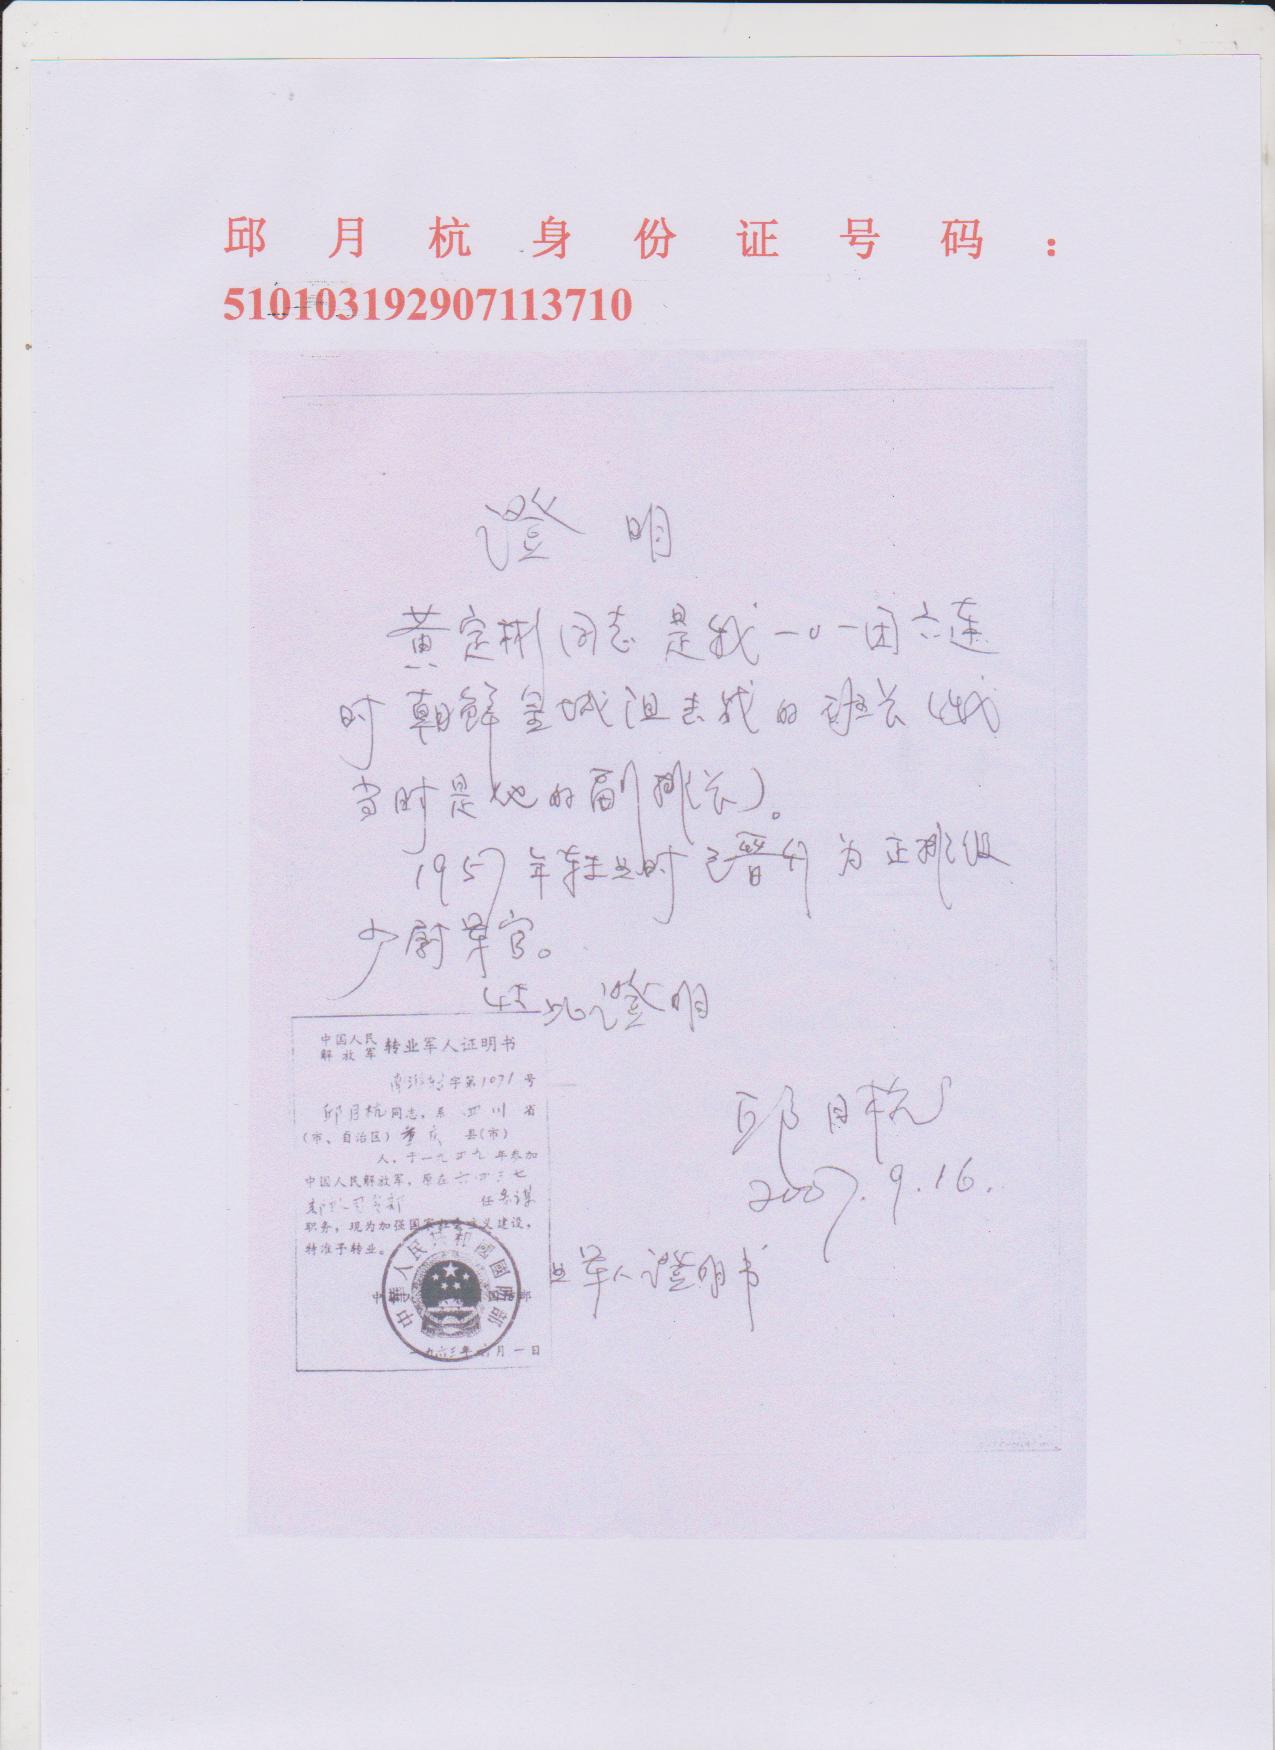 邱月杭身份证号码：
510103192907113710
證明
黄定彬同志是我一〇一团六连
时朝鲜金城阻击战的班长（我
当时是他的副排长）。
1957年转业时已晋升为正排级
少尉军官。
特此證明
邱月杭
2007.9.16.
中国人民
解放军 转业军人证明书
字第1071号
邱月杭同志，系四川省
（市、自治区）重庆县（市）
人，于一九四九年参加
中国人民解放军，原在六四三七
任参谋
职务，现为加强国家社会主义建设，
特准予转业。
中華人民共和國國防部
一九六三年 月一日
业军人證明书